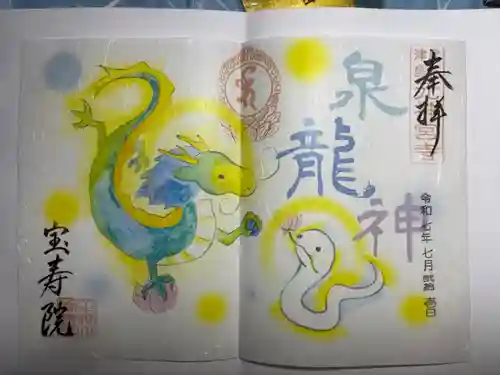 奉拝
泉龍神
令和七年七月弐拾壱日
宝寿院